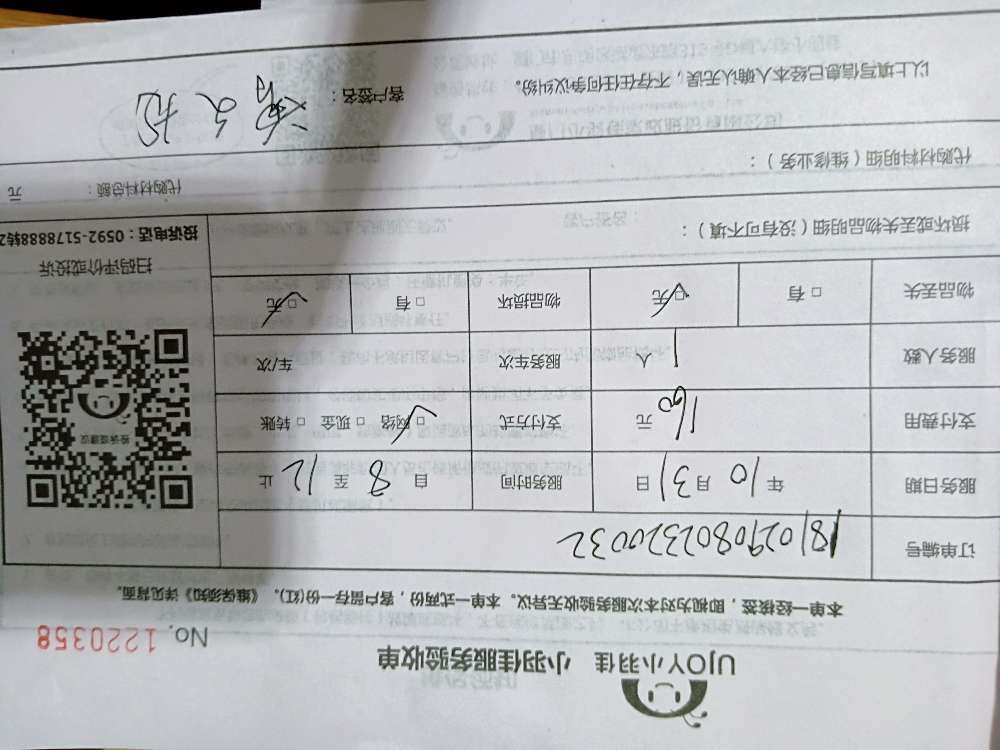 UJOY小羽佳 小羽佳服务验收单
No. 1220358
本单一经核签，即视为对本次服务验收无异议。本单一式两份，客户留存一份(红)。《维保须知》详见背面。
订单编号 1810290802320032
服务日期 年 10 月 31 日 服务时间 自 8 至 12 止
支付费用 160 元 支付方式 □网络 □现金 □转账
服务人数 1 人 服务车次 车/次
物品丢失 □有 □无 物品损坏 □有 □无
扫码评价或投诉
投诉电话：0592-5178888转2
投诉或建议
损坏或丢失物品明细（没有可不填）：
代购材料明细（维修业务）： 代购材料总额： 元
以上填写信息已经本人确认无误，不存在任何争议纠纷。 客户签名：